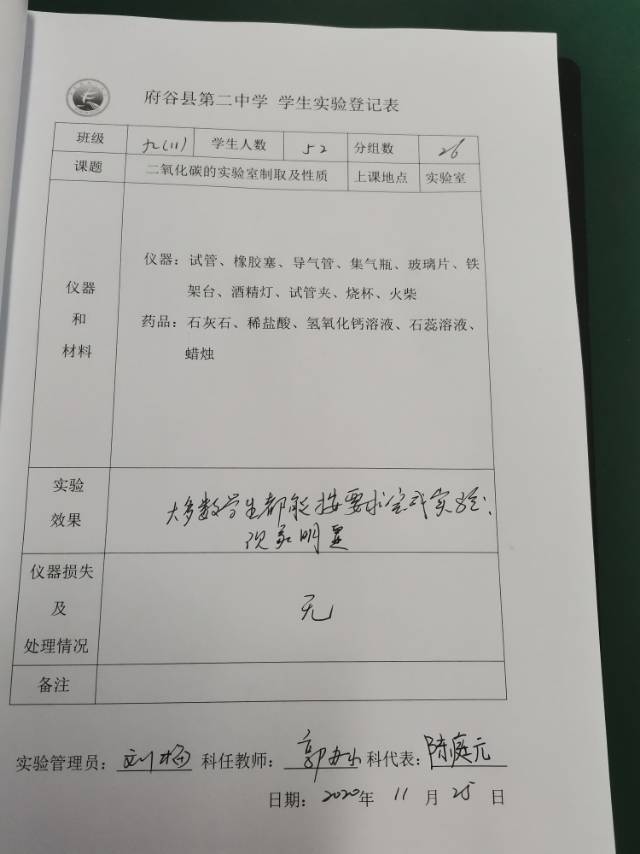 府谷县第二中学 学生实验登记表
班级 九(11) 学生人数 52 分组数 26
课题 二氧化碳的实验室制取及性质 上课地点 实验室
仪器和材料
仪器：试管、橡胶塞、导气管、集气瓶、玻璃片、铁
架台、酒精灯、试管夹、烧杯、火柴
药品：石灰石、稀盐酸、氢氧化钙溶液、石蕊溶液、
蜡烛
实验效果
大多数学生都能按要求完成实验，
现象明显
仪器损失及处理情况 无
备注
实验管理员：刘杨 科任教师：郭 科代表：陈庭元
日期：2020年 11 月 25 日